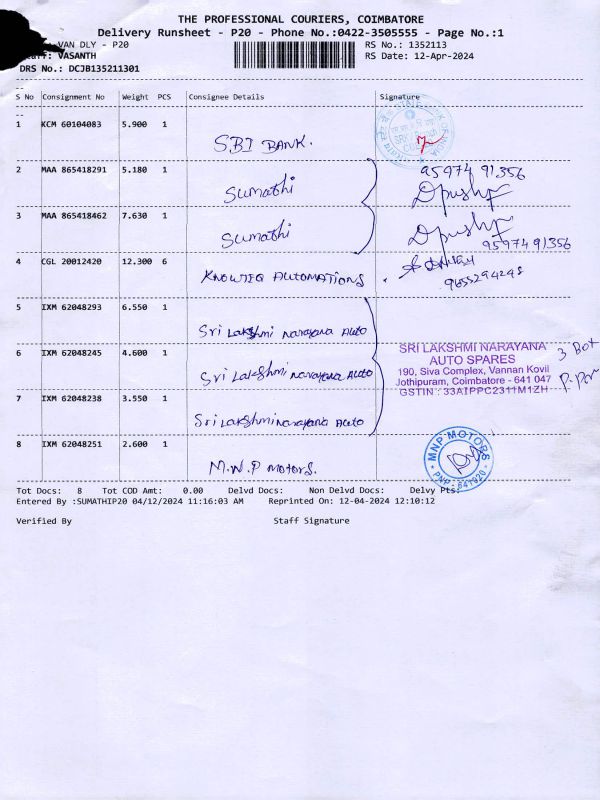 THE PROFESSIONAL COURIERS, COIMBATORE
Delivery Runsheet - P20 - Phone No.:0422-3505555 - Page No.:1
VAN DLY - P20
RS No.: 1352113
VASANTH
RS Date: 12-Apr-2024
DRS No.: DCJB135211301
S No Consignment No Weight PCS Consignee Details Signature
1 KCM 60104083 5.900 1 SBI BANK.
2 MAA 865418291 5.180 1 Sumathi 95974 91356
3 MAA 865418462 7.630 1 Sumathi 95974 91356
4 CGL 20012420 12.300 6 KNOWTEQ AUTOMATIONS. 9655294248
5 IXM 62048293 6.550 1 Sri Lakshmi Narayana Auto
6 IXM 62048245 4.600 1 Sri Lakshmi Narayana Auto
7 IXM 62048238 3.550 1 Sri Lakshmi Narayana Auto
SRI LAKSHMI NARAYANA
AUTO SPARES
190, Siva Complex, Vannan Kovil
Jothipuram, Coimbatore - 641 047
GSTIN : 33AIPPC2311M1ZH
3 Box
8 IXM 62048251 2.600 1 M.N.P Motors.
MNP MOTORS
PNP - 641020
Tot Docs: 8 Tot COD Amt: 0.00 Delvd Docs: Non Delvd Docs: Delvy Pts:
Entered By :SUMATHIP20 04/12/2024 11:16:03 AM Reprinted On: 12-04-2024 12:10:12
Verified By Staff Signature